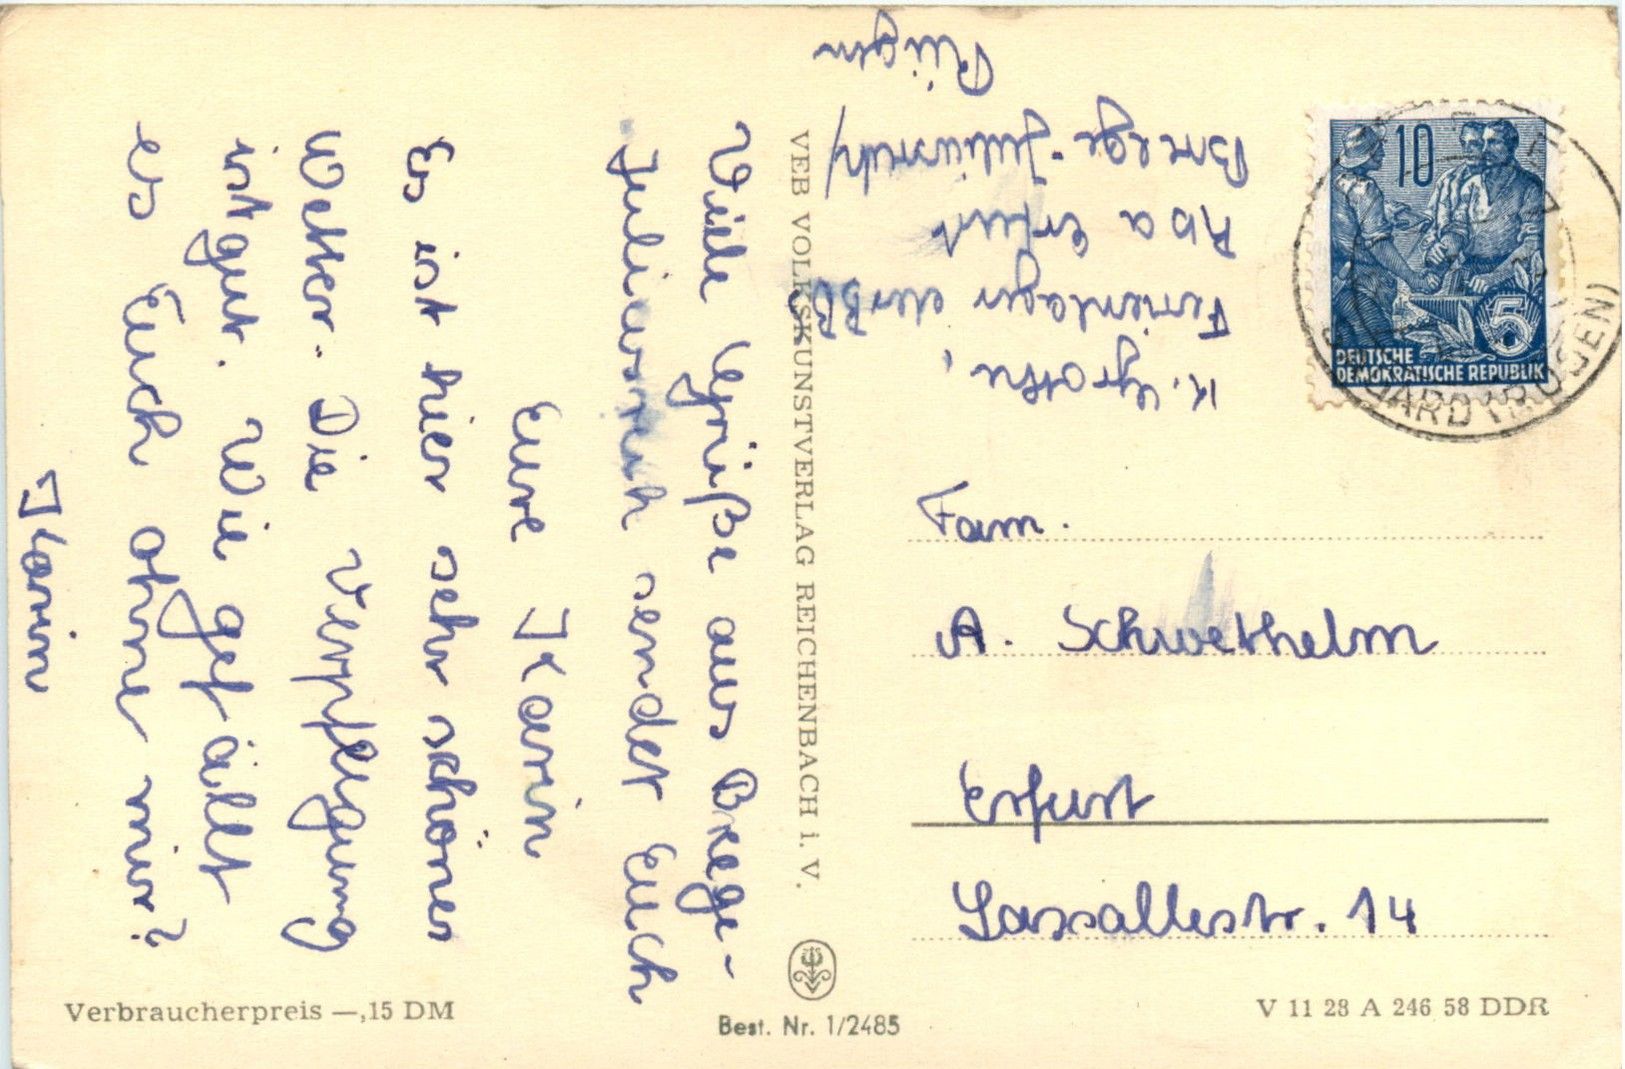 Viele Grüße aus Brege-
Juliusruh sendet Euch
Eure Karin
Es ist hier sehr schönes
Wetter. Die Verpflegung
ist gut. Wie gefällt
es Euch ohne mir?
Karin
VEB VOLKSKUNSTVERLAG REICHENBACH i. V.
K. Grothe,
Ferienlager der
Rba Erfurt
Breege-Juliusruh/
Rügen
10
5
DEUTSCHE
DEMOKRATISCHE REPUBLIK
Fam.
A. Schwethelm
Erfurt
Lassallestr. 14
Verbraucherpreis —,15 DM
Best. Nr. 1/2485
V 11 28 A 246 58 DDR